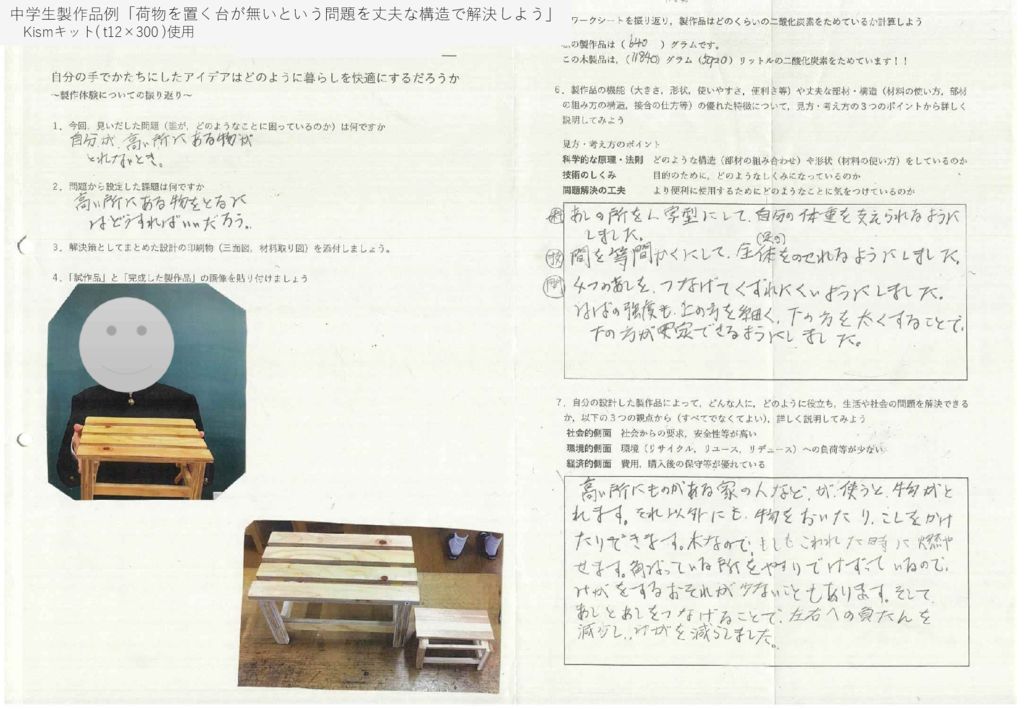 中学生製作品例「荷物を置く台が無いという問題を丈夫な構造で解決しよう」
Kismキット( t12×300 )使用
自分の手でかたちにしたアイデアはどのように暮らしを快適にするだろうか
～製作体験についての振り返り～
1．今回，見いだした問題（誰が，どのようなことに困っているのか）は何ですか
自分が、高い所にある物が
とれないとき。
2．問題から設定した課題は何ですか
高い所にある物をとるに
はどうすればいいだろう。
3．解決策としてまとめた設計の印刷物（三面図，材料取り図）を添付しましょう。
4．「試作品」と「完成した製作品」の画像を貼り付けましょう
ワークシートを振り返り，製作品はどのくらいの二酸化炭素をためているか計算しよう
の製作品は（ 640 ）グラムです。
この木製品は，（ 11840）グラム（5920）リットルの二酸化炭素をためています！！
6．製作品の機能（大きさ，形状，使いやすさ，便利さ等）や丈夫な部材・構造（材料の使い方，部材
の組み方の構造，接合の仕方等）の優れた特徴について，見方・考え方の3つのポイントから詳しく
説明してみよう
見方・考え方のポイント
科学的な原理・法則 どのような構造（部材の組み合わせ）や形状（材料の使い方）をしているのか
技術のしくみ 目的のために，どのようなしくみになっているのか
問題解決の工夫 より便利に使用するためにどのようなことに気をつけているのか
あしの所を人字型にして、自分の体重を支えられるように
しました。
技 間を等間かくにして、全体をのせれるようにしました。
問 4つのあしを、つなげてくずれにくいようにしました。
はばの強度も、上の方を細く、下の方を太くすることで、
下の方が安定できるようにしました。
7．自分の設計した製作品によって，どんな人に，どのように役立ち，生活や社会の問題を解決できる
か，以下の3つの観点から（すべてでなくてよい），詳しく説明してみよう
社会的側面 社会からの要求，安全性等が高い
環境的側面 環境（リサイクル，リユース，リデュース）への負荷等が少ない
経済的側面 費用，購入後の保守等が優れている
高い所にものがある家の人など、が、使うと、物がと
れます。それ以外にも、物をおいたり、こしをかけ
たりできます。木なので、もしもこわれた時に燃や
せます。角ばっている所をやすりでけずっているので、
けがをするおそれが少ないこともあります。そして、
あしとあしをつなげることで、左右への負たんを
減少し、けがを減らしました。